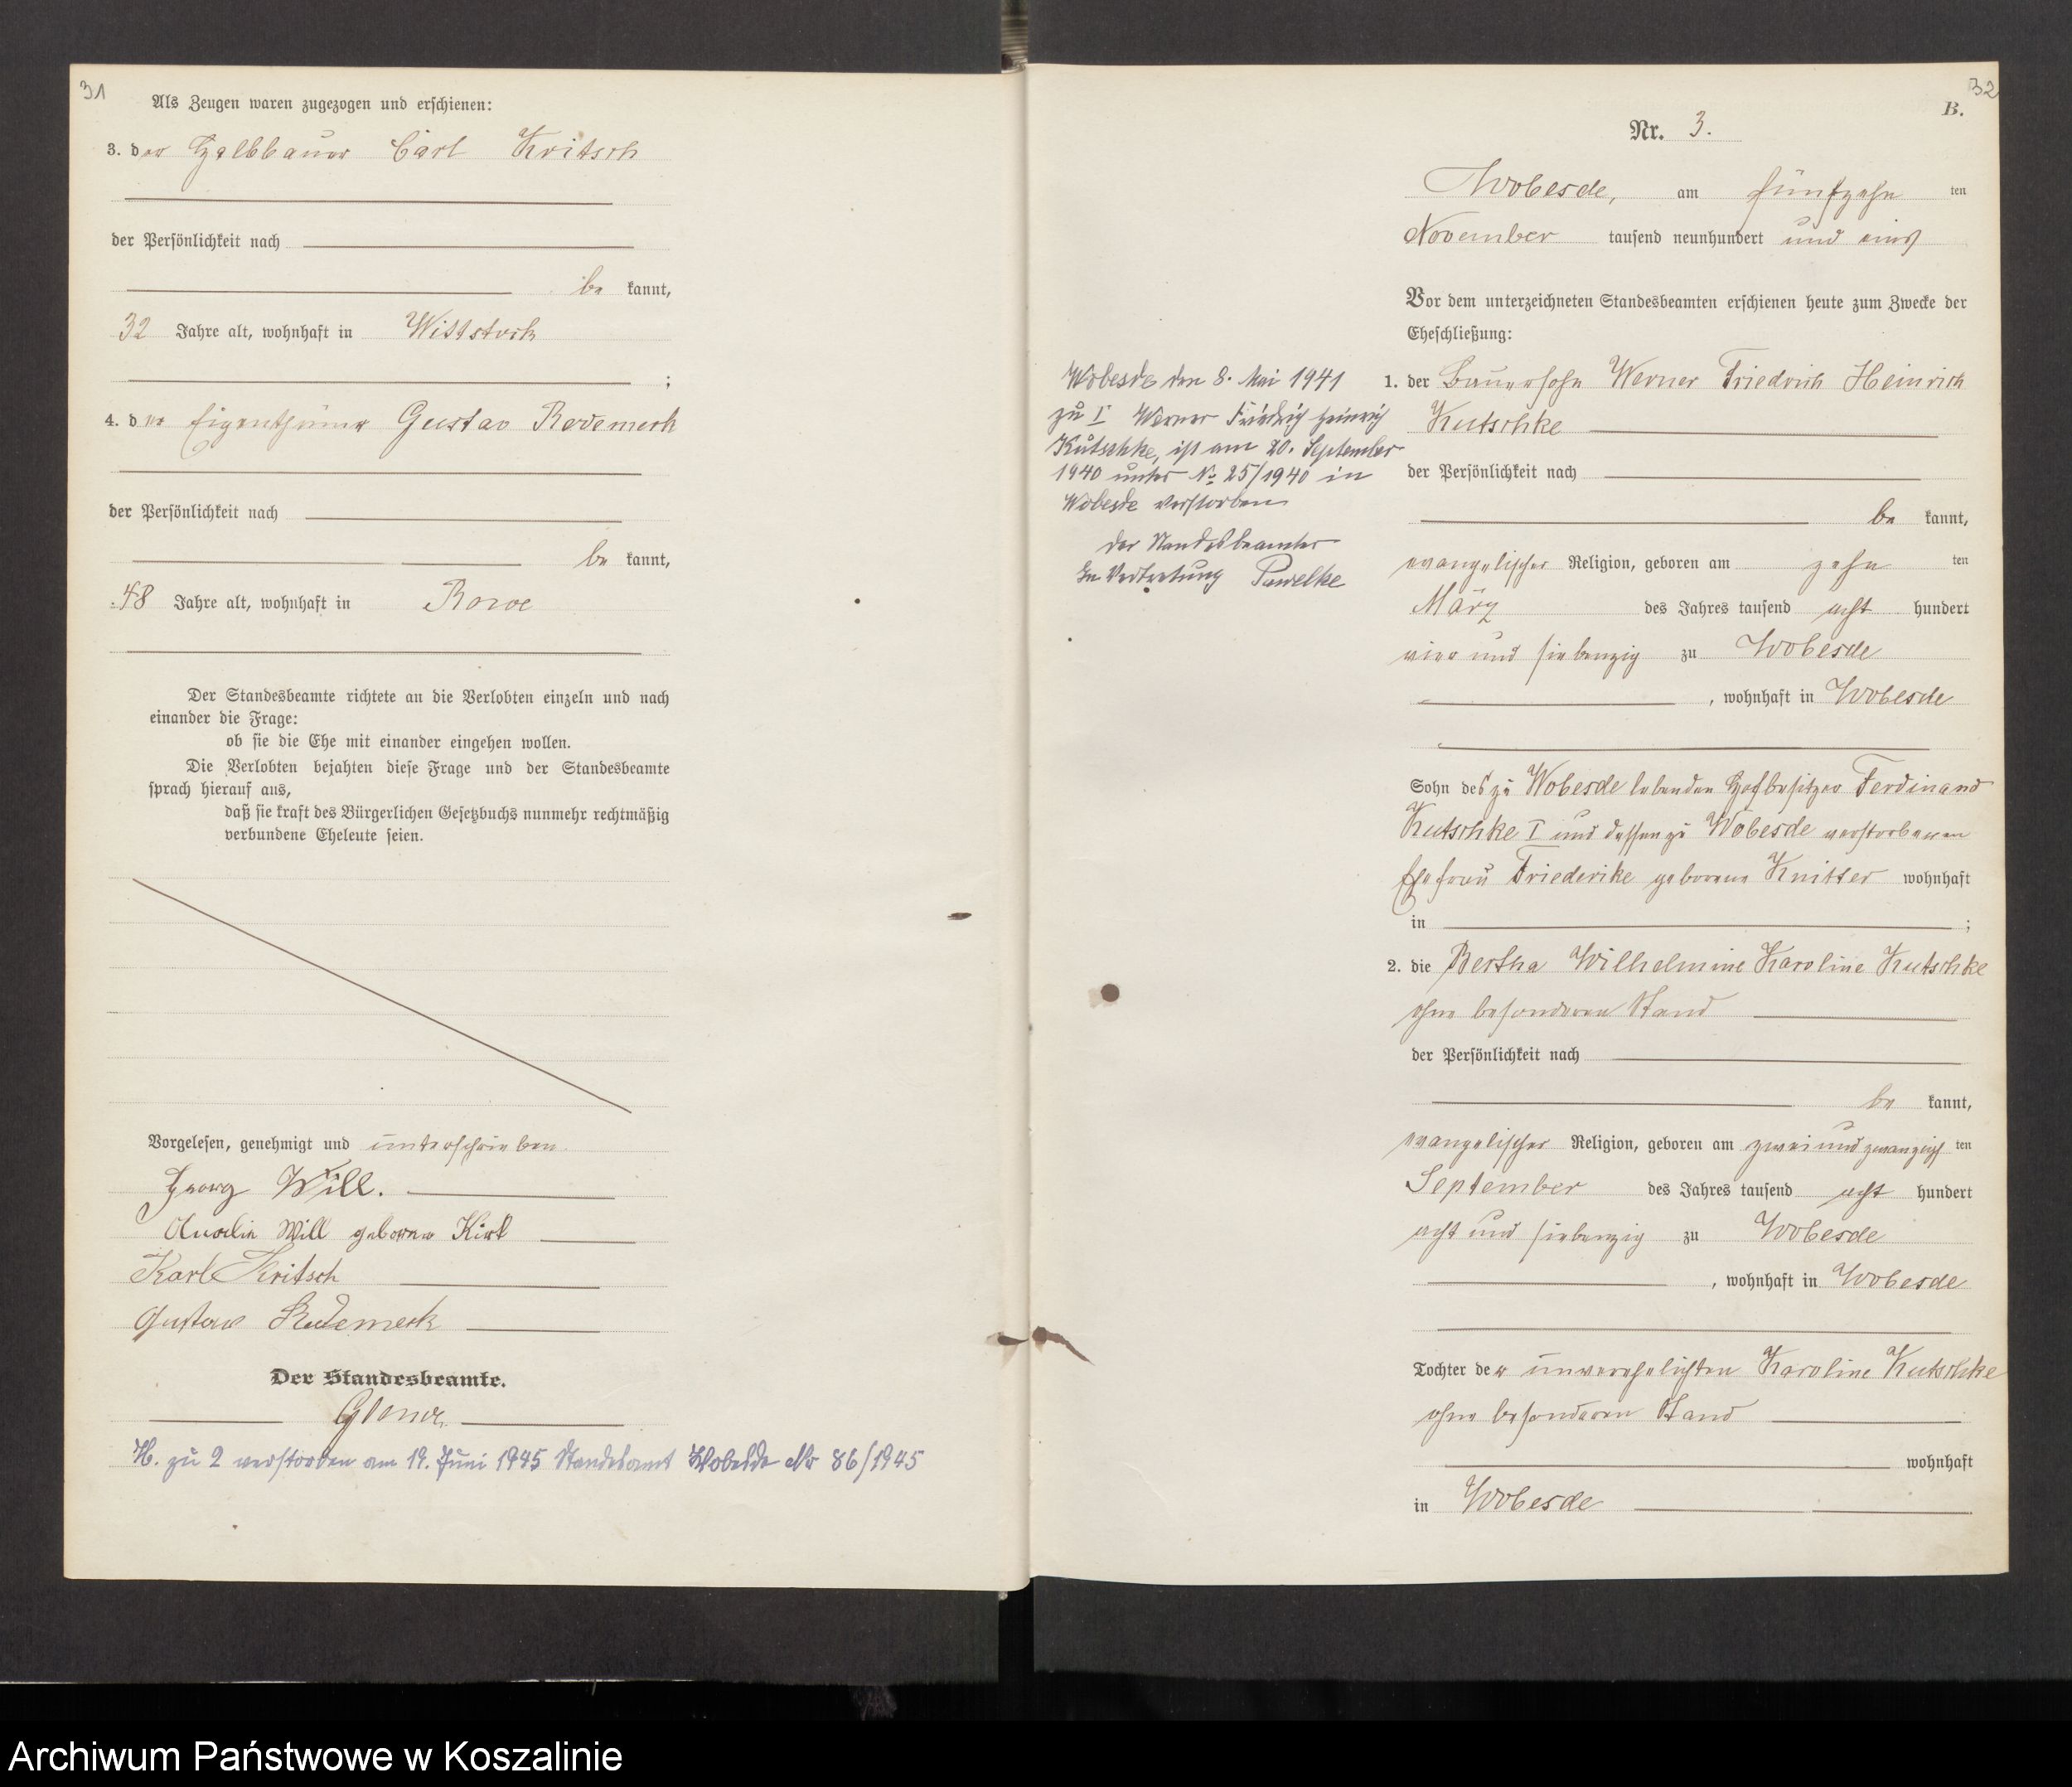 31
Als Zeugen waren zugezogen und erschienen:
3. der Halbbauer Carl Kritsch
der Persönlichkeit nach
be kannt,
32 Jahre alt, wohnhaft in Wittstock
;
4. der Eigenthümer Gustav Rodemerk
der Persönlichkeit nach
be kannt,
48 Jahre alt, wohnhaft in Rowe
Der Standesbeamte richtete an die Verlobten einzeln und nach
einander die Frage:
ob sie die Ehe mit einander eingehen wollen.
Die Verlobten bejahten diese Frage und der Standesbeamte
sprach hierauf aus,
daß sie kraft des Bürgerlichen Gesetzbuchs nunmehr rechtmäßig
verbundene Eheleute seien.
Vorgelesen, genehmigt und unterschrieben.
Georg Will.
Will geborene
Karl Kritsch
Gustav
Der Standesbeamte.
H. zu 2 verstorben am 19. Juni 1945 Standesamt Wobesde Nr 86/1945
32
B.
Nr. 3.
Wobesde, am fünfzehn ten
November tausend neunhundert und eins
Vor dem unterzeichneten Standesbeamten erschienen heute zum Zwecke der
Eheschließung:
1. der Bauersohn Werner Friedrich Heinrich
Kutschke
der Persönlichkeit nach
be kannt,
evangelischer Religion, geboren am zehn ten
März des Jahres tausend acht hundert
vier und siebenzig zu Wobesde
, wohnhaft in Wobesde
Sohn des zu Wobesde lebenden Hofbesitzer Ferdinand
Kutschke I und dessen zu Wobesde verstorbenen
Ehefrau Friederike geborene Knitter wohnhaft
in ;
2. die Bertha Wilhelmine Karoline Kutschke
ohne besonderen Stand
der Persönlichkeit nach
be kannt,
evangelischer Religion, geboren am zwei und zwanzigs ten
September des Jahres tausend acht hundert
acht und siebenzig zu Wobesde
, wohnhaft in Wobesde
Tochter der unverehelichten Karoline Kutschke
ohne besonderen Stand
wohnhaft
in Wobesde
Wobesde den 8. Mai 1941
zu I Werner Friedrich Heinrich
Kutschke, ist am 20. September
1940 unter No 25/1940 in
Wobesde verstorben
Der Standesbeamte
In Vertretung Pawelke
Archiwum Państwowe w Koszalinie